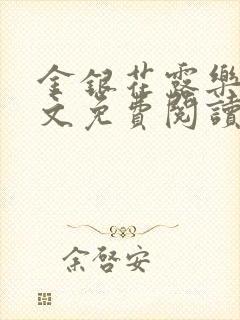 金銀花露樂
文免費閱讀
余啓安